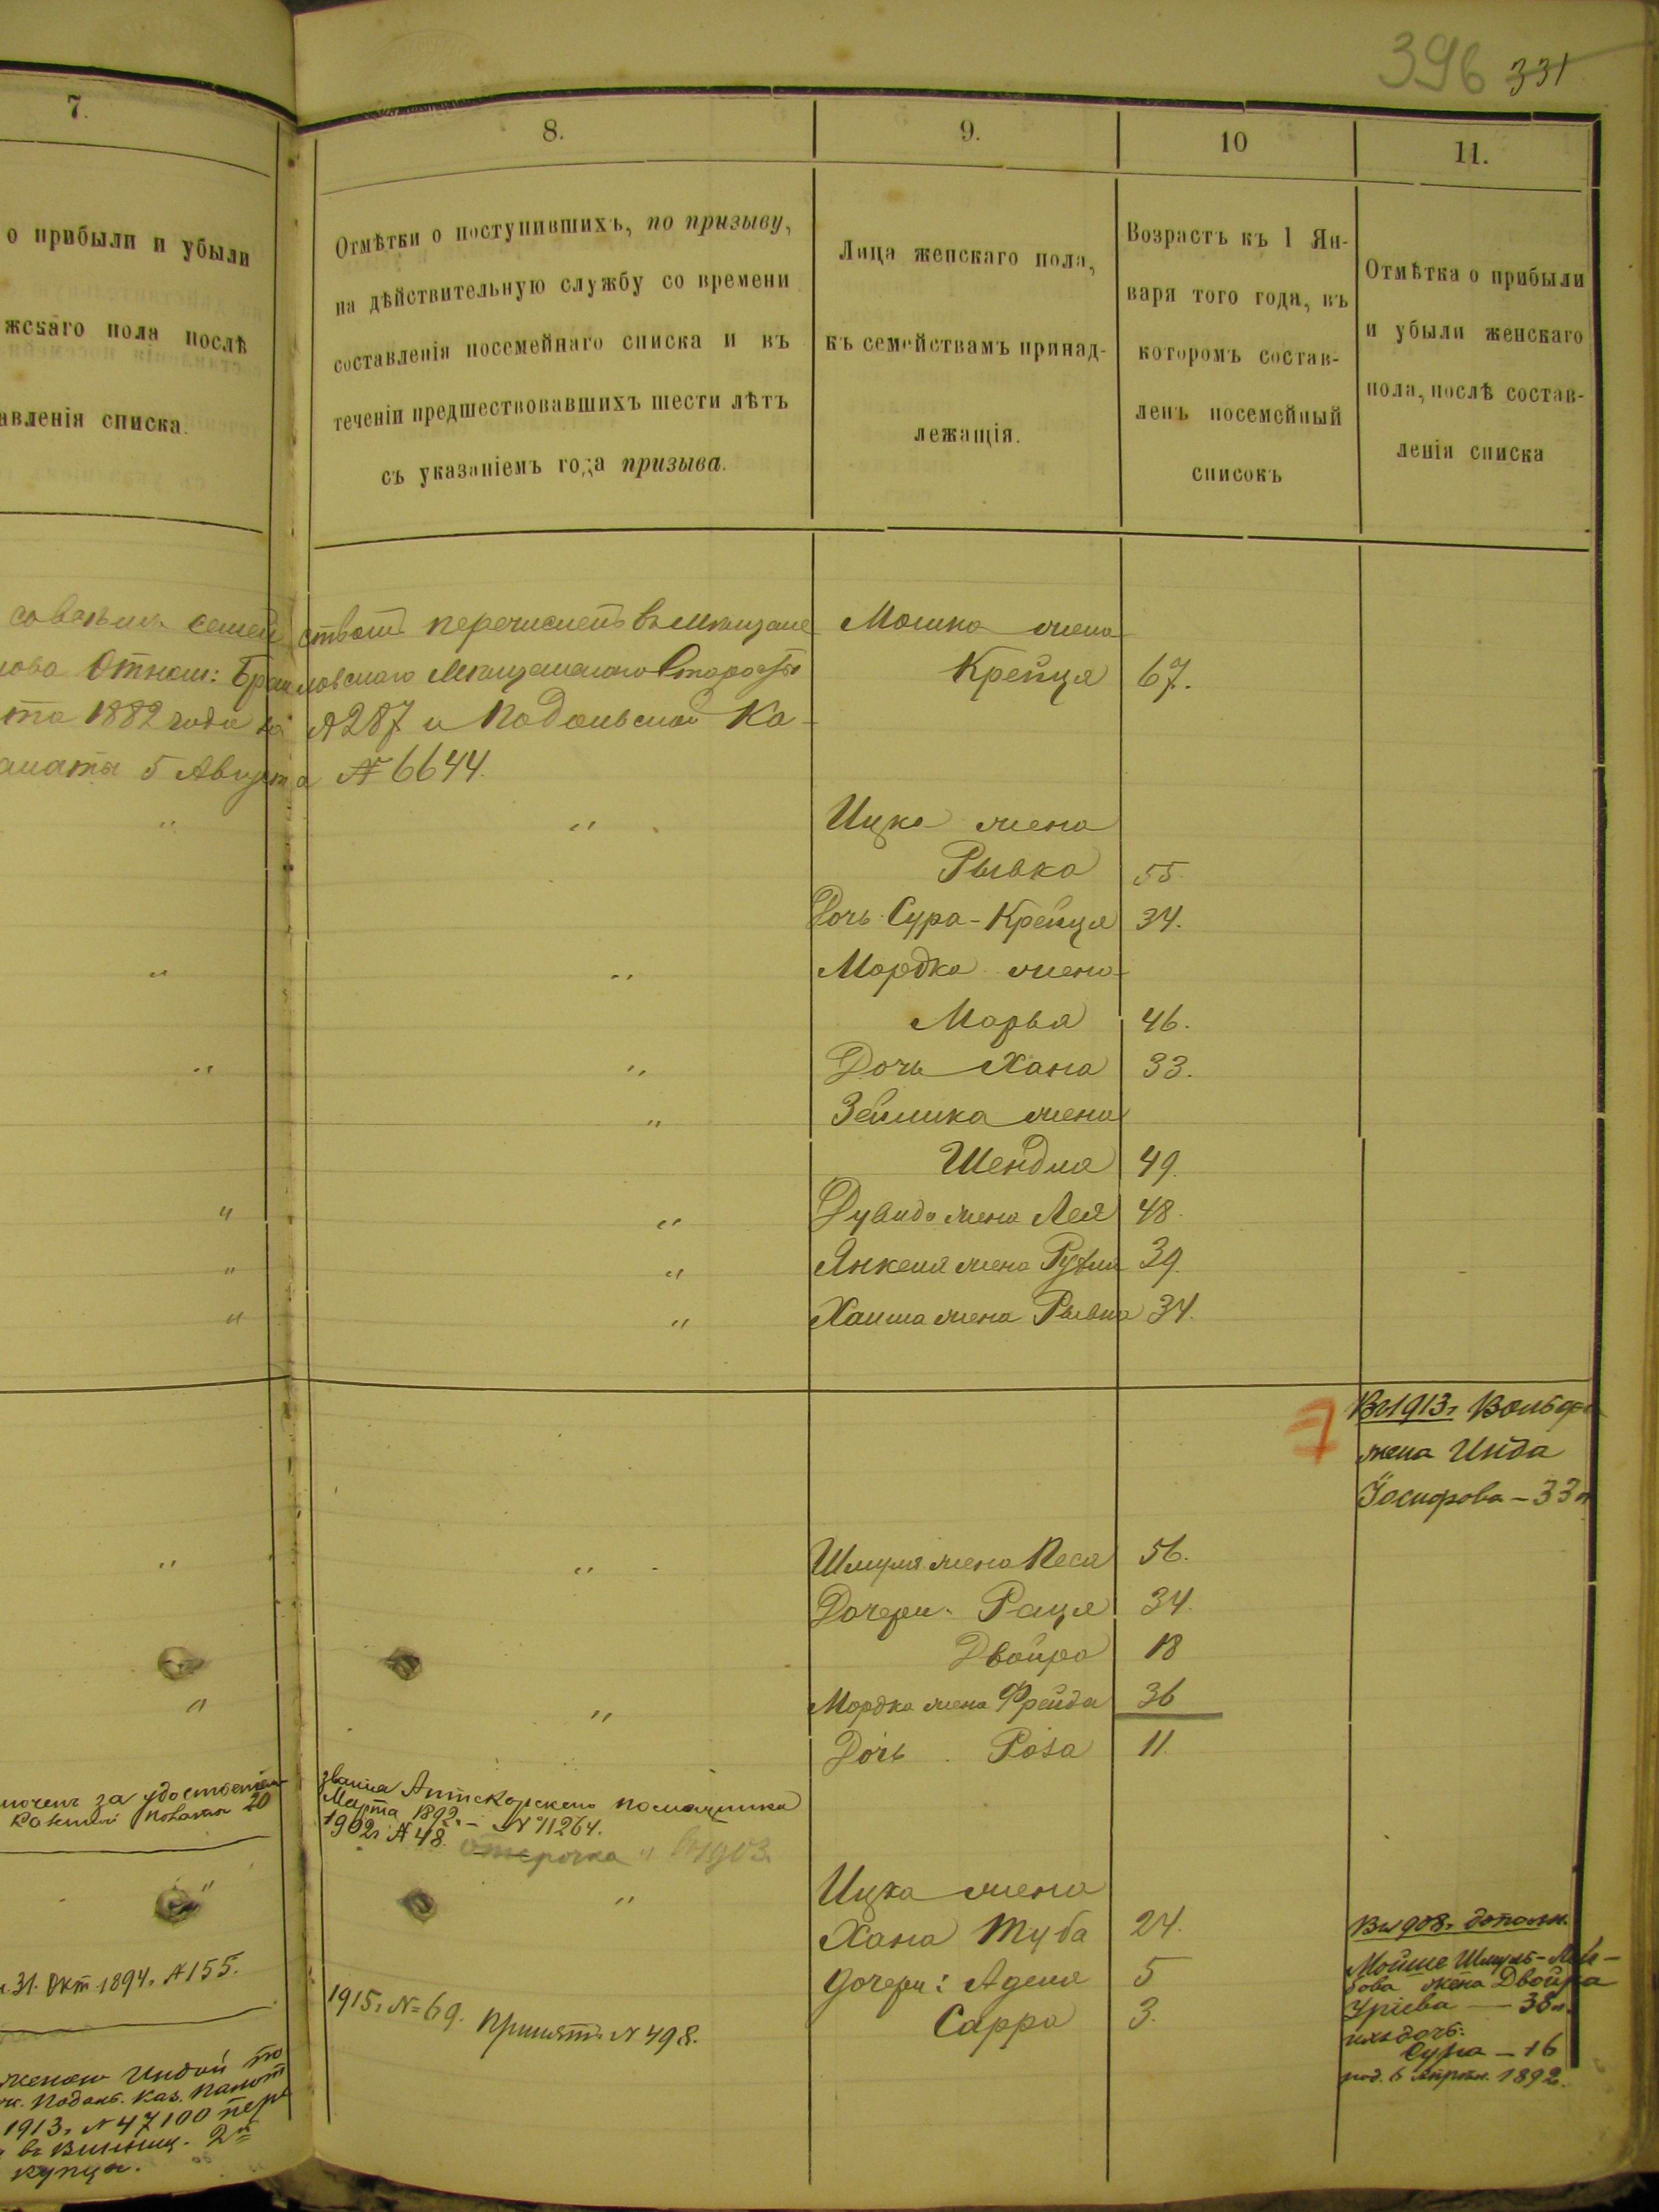 396 331
7.
о прибыли и убыли
жскаго пола послѣ
авленія списка.
8.
Отмѣтки о поступившихъ, по призыву,
на дѣйствительную службу со времени
составленія посемейнаго списка и въ
теченіи предшествовавшихъ шести лѣтъ
съ указаніемъ года призыва.
9.
Лица женскаго пола,
къ семействамъ принад-
лежащія.
10
Возрастъ къ 1 Ян-
варя того года, въ
которомъ состав-
ленъ посемейный
списокъ
11.
Отмѣтка о прибыли
и убыли женскаго
пола, послѣ состав-
ленія списка
семействомъ перечисленъ въ мѣщане
Отнош: Брацловскаго Мѣщанскаго Старосты
та 1882 года за № 287 и Подольской Ка-
латы 5 Августа № 6644.
Мошка жена
Крейця 67.
" " Ицка жена
Рывка 55.
Дочь Сура-Крейця 34.
" " Мордка жена
Марья 46.
" " Дочь Хана 33.
" жена
Шендля 49.
" " Дувида жена Лея 48.
" " Янкеля жена 39.
" " Хаима жена Рывка 34.
Въ 1913 г Вольфа
жена Инда
Іосифова - 33 л
" " Шмуля жена Песя 56.
Дочери: Рация 34.
Двойра 18
" " Мордка жена Фрейда 36
Дочь Роза 11.
за удостоеніем званія Аптекарскаго помощника
20 Марта 1892 г. - № 11264.
1902 г. № 48. отсрочка въ 1903.
" " Ицка жена
Хана Туба 24.
дочери: Аделя 5
Сарра 3.
31. Окт. 1894 г. № 155.
1915 г. № 69. Принятъ № 498.
Въ 1908 г. дополн.
Мойше Шмуль-Лей-
бова жена Двойра
Уріева — 38 л.
ихъ дочь:
Сура - 16
род. 6 1892.
женою Индой по
Подольс. Каз. Палат
1913 г. № 47100 пере
въ Винниц. 2й
купцы.